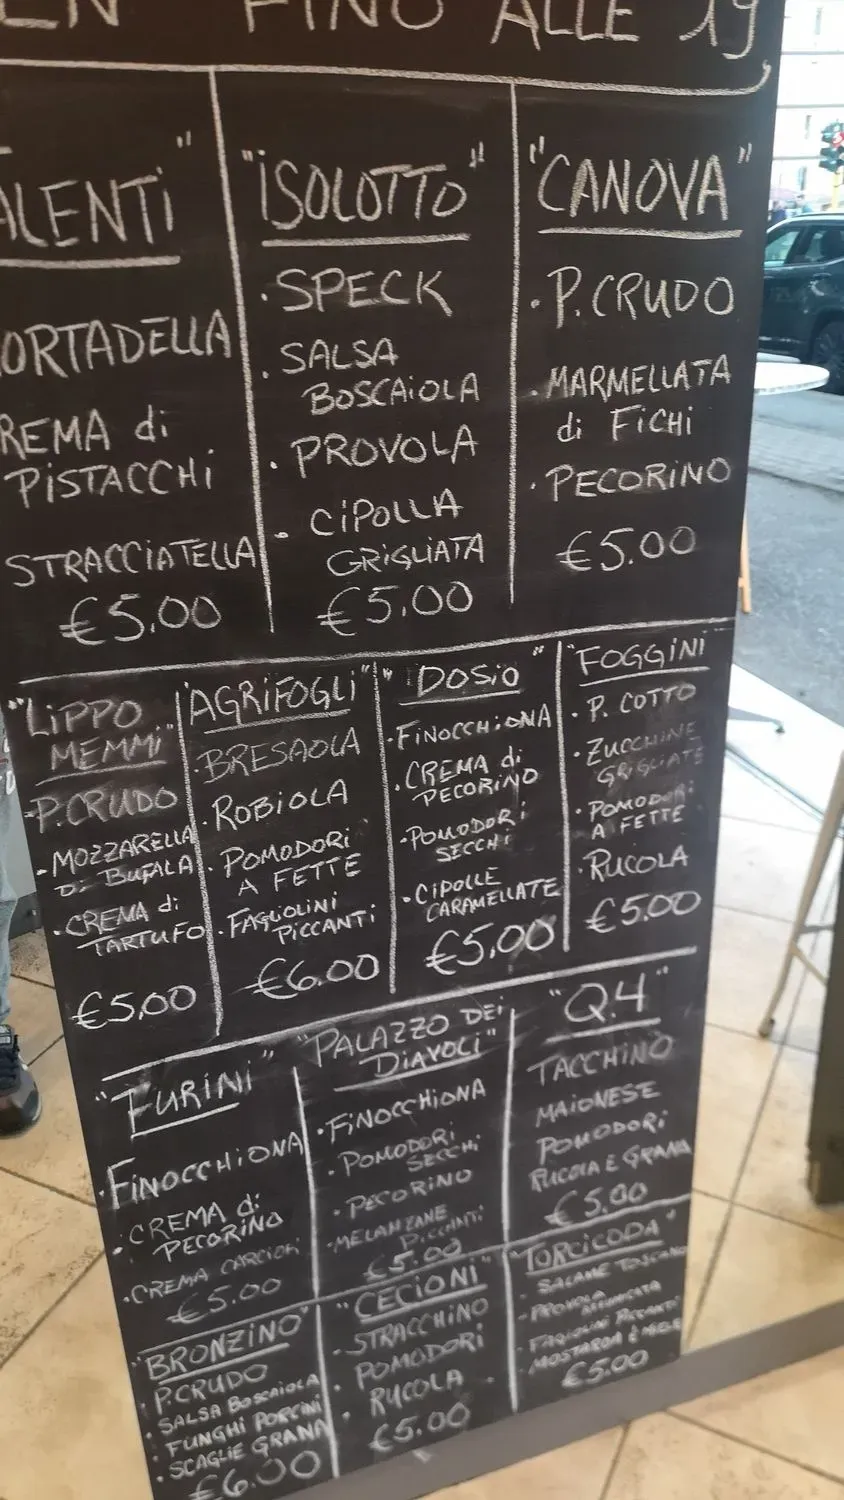 EN FINO ALLE 19
ALENTi"
ORTADELLA
REMA di
PiSTACCHi
STRACCIATELLA
€5.00
"iSOLOTTO"
·SPECK
·SALSA
BOSCAiOLA
·PROVOLA
·CiPOLLA
GRiGLiATA
€5.00
"CANOVA"
·P.CRUDO
·MARMELLATA
di FiCHi
·PECORINO
€5.00
"LiPPO
MEMMi"
P.CRUDO
·MOZZARELLA
Di BUFALA
·CREMA di
TARTUFO
€5,00
"AGRIFOGLi"
·BRESAOLA
·ROBiOLA
·POMODORi
A FETTE
·FAGiOLiNi
PiCCANTi
€6.00
"DOSiO"
·FiNOCCHiONA
·CREMA di
PECORiNO
·POMODORi
SECCHi
·CiPOLLE
CARAMELLATE
€5,00
"FOGGiNi
·P. COTTO
·ZUCCHiNE
GRiGLiATE
·POMODORi
A FETTE
·RUCOLA
€5.00
"FURiNi"
·FiNOCCHiONA
·CREMA di
PECORiNO
·CREMA CARCiOFi
€5.00
"PALAZZO DEi
DiAVOLi"
·FiNOCCHiONA
·POMODORi
SECCHi
·PECORiNO
·MELANZANE
PiCCANTi
€5.00
"Q.4"
TACCHiNO
MAiONESE
POMODORi
RUCOLA E GRANA
€5.00
"BRONZiNO"
·P.CRUDO
·SALSA BOSCAiOLA
·FUNGHi PORCiNi
·SCAGLiE GRANA
€6.00
"CECiONi"
·STRACCHiNO
·POMODORi
·RUCOLA
€5.00
"TORCiCODA"
·SALAME TOSCANO
·PROVOLA
AFFUMiCATA
·FAGiOLiNi PiCCANTi
·MOSTARDA E MiELE
€5.00